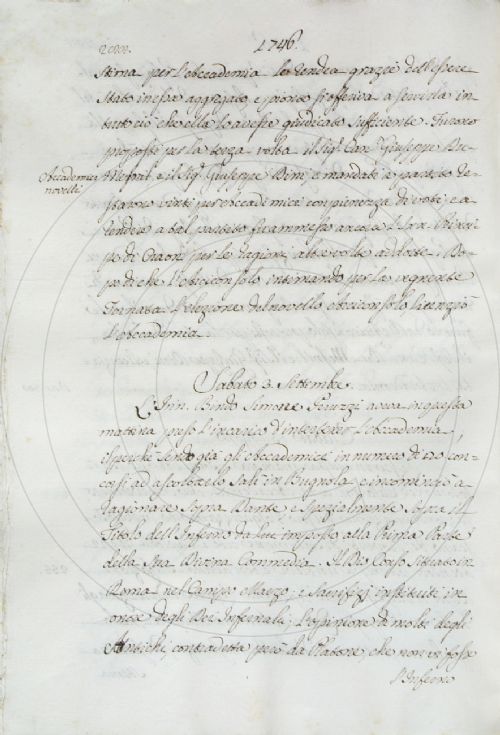 1746.
stima per l'Accademia le rendea grazie dell'essere
stato in essa aggregato, e pronto s'offeriva a servirla in
tutto ciò che ella lo avesse giudicato sufficiente. Furono
proposti per la terza volta il Sig.r Cav. Giuseppe
Accademici
novelli
e il Sig.r Giuseppe Bini, e mandati a partito re=
starono vinti per Accademici con pienezza di voti; e a
tal partito fu ammesso ancora l'Ior. Princi=
pe di Craon per le ragioni altre volte addotte. Do=
po di che l'Arciconsolo intimando per la vegnente
Tornata l'elezione del novello Arciconsolo licenziò
l'Accademia.
Sabato 3. Settembre.
L'Inn. Bindo Simone Peruzzi aveva in questa
mattina preso l'incarico d'intertener l'Accademia,
sicché sendo già gli Accademici in numero di 120 con=
corsi ad ascoltarlo salì in Bugnola, e incominciò a
ragionare sopra Dante, e spezialmente sopra il
Titolo dell'Inferno da lui imposto alla Prima Parte
della sua Divina Commedia. Il Dio Conso situato in
Roma nel Campo Marzo, e Sacrifizj instituiti in
onore degli Dei Infernali; l'opinione di molti degli
Antichi, contradetta però da Platone, che non vi fosse
l'Inferno